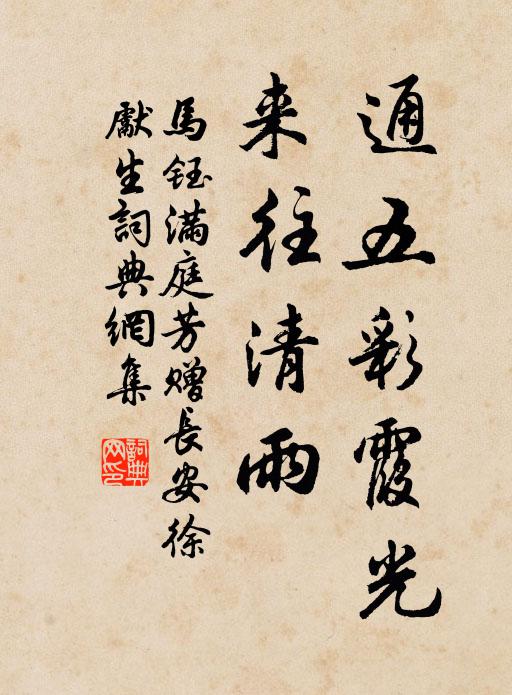 通五彩霞光
来往清雨
馬鈺滿庭芳贈長安徐
獻生詞典網集
詞典
网印